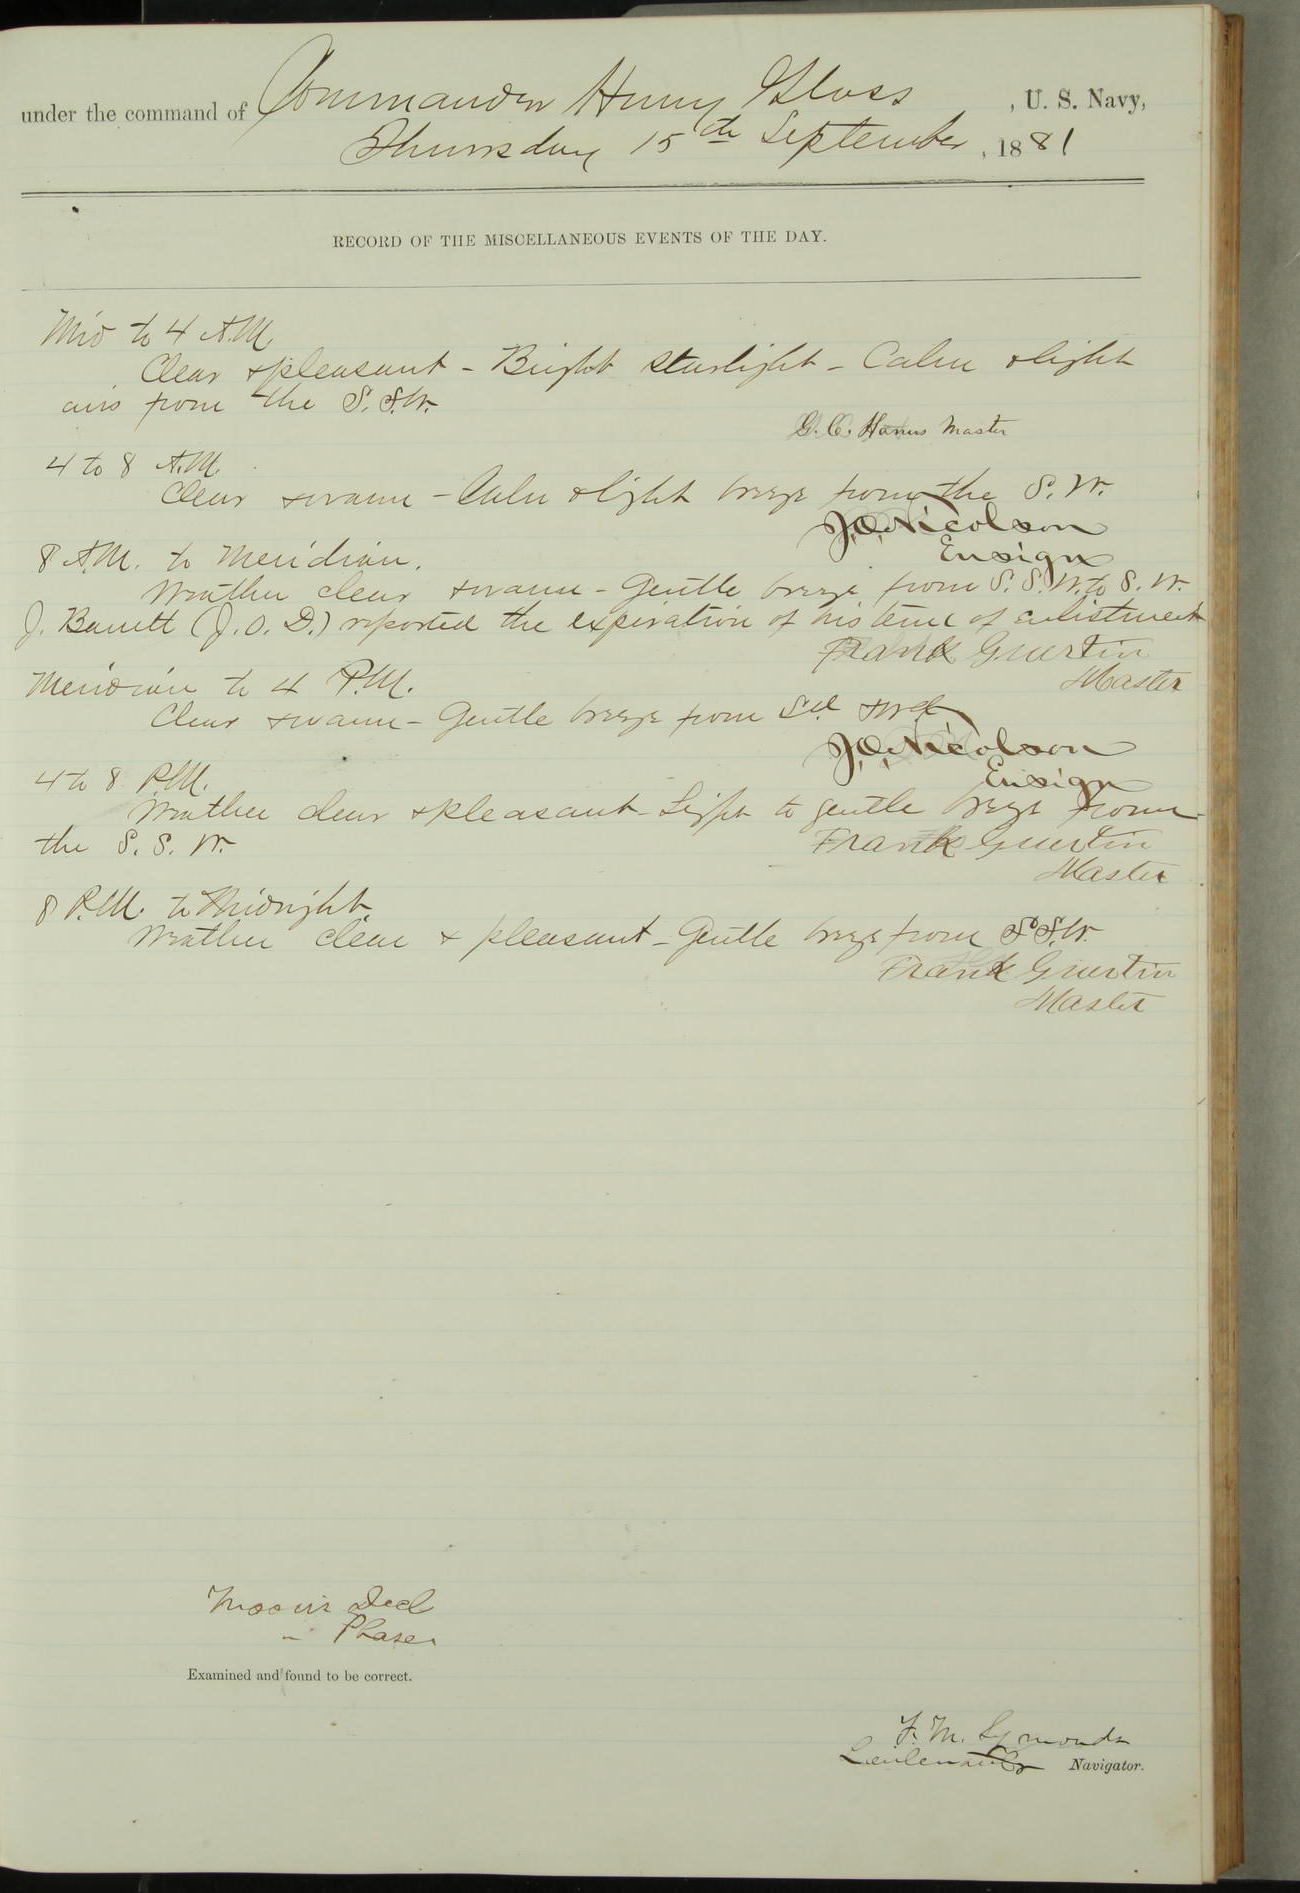 under the command of Commander Henry Glass, U. S. Navy,
Thursday 15th September, 1881
RECORD OF THE MISCELLANEOUS EVENTS OF THE DAY.
Mid to 4 A.M.
Clear & pleasant - Bright starlight - Calm & light
airs from the S. S.W.
G. C. Hanus Master
4 to 8 A.M.
Clear & warm - Calm & light breeze from the S. W.
J.O. Nicolson
Ensign
8 A.M. to Meridian.
Weather clear & warm - Gentle breeze from S. S. W. to S. W.
J. Barrett (J. O. D.) reported the expiration of his term of enlistment
Frank Guertin
Master
Meridian to 4 P.M.
Clear & warm - Gentle breeze from Sd & Wd
J.O. Nicolson
Ensign
4 to 8 P.M.
Weather clear & pleasant - Light to gentle breeze from
the S. S. W.
Frank Guertin
Master
8 P.M. to Midnight.
Weather clear & pleasant - Gentle breeze from S. S. W.
Frank Guertin
Master
Moon's Decl
" Phase
Examined and found to be correct.
F. M. Symonds
Lieutenant Navigator.